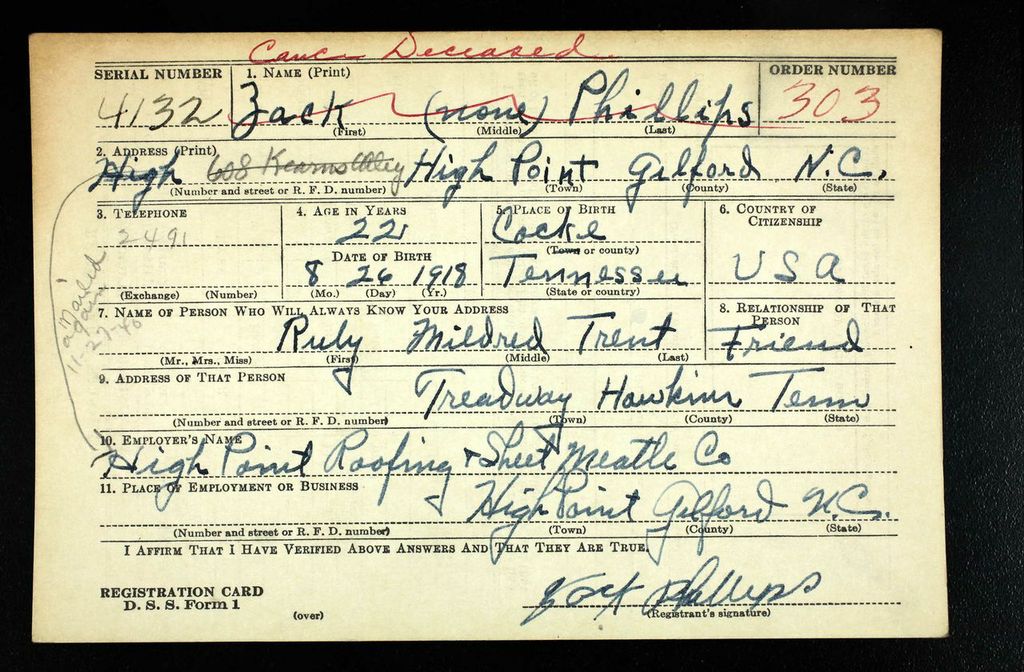 Canc Deceased
SERIAL NUMBER 1. NAME (Print) ORDER NUMBER
4132 Zack (none) Phillips 303
(First) (Middle) (Last)
2. ADDRESS (Print)
High 608 Kearns Alley High Point Gilford N.C.
(Number and street or R. F. D. number) (Town) (County) (State)
3. TELEPHONE 4. AGE IN YEARS 5. PLACE OF BIRTH 6. COUNTRY OF CITIZENSHIP
2491 22 Cocke
(Town or county)
DATE OF BIRTH
8 26 1918 Tennessee USA
(Exchange) (Number) (Mo.) (Day) (Yr.) (State or country)
mailed again 11-27-40
7. NAME OF PERSON WHO WILL ALWAYS KNOW YOUR ADDRESS 8. RELATIONSHIP OF THAT PERSON
Ruby Mildred Trent Friend
(Mr., Mrs., Miss) (First) (Middle) (Last)
9. ADDRESS OF THAT PERSON
Treadway Hawkins Tenn
(Number and street or R. F. D. number) (Town) (County) (State)
10. EMPLOYER'S NAME
High Point Roofing & Sheet Meatle Co
11. PLACE OF EMPLOYMENT OR BUSINESS
High Point Gilford N.C.
(Number and street or R. F. D. number) (Town) (County) (State)
I AFFIRM THAT I HAVE VERIFIED ABOVE ANSWERS AND THAT THEY ARE TRUE.
REGISTRATION CARD
D. S. S. Form 1
(over)
Zack Phillips
(Registrant's signature)